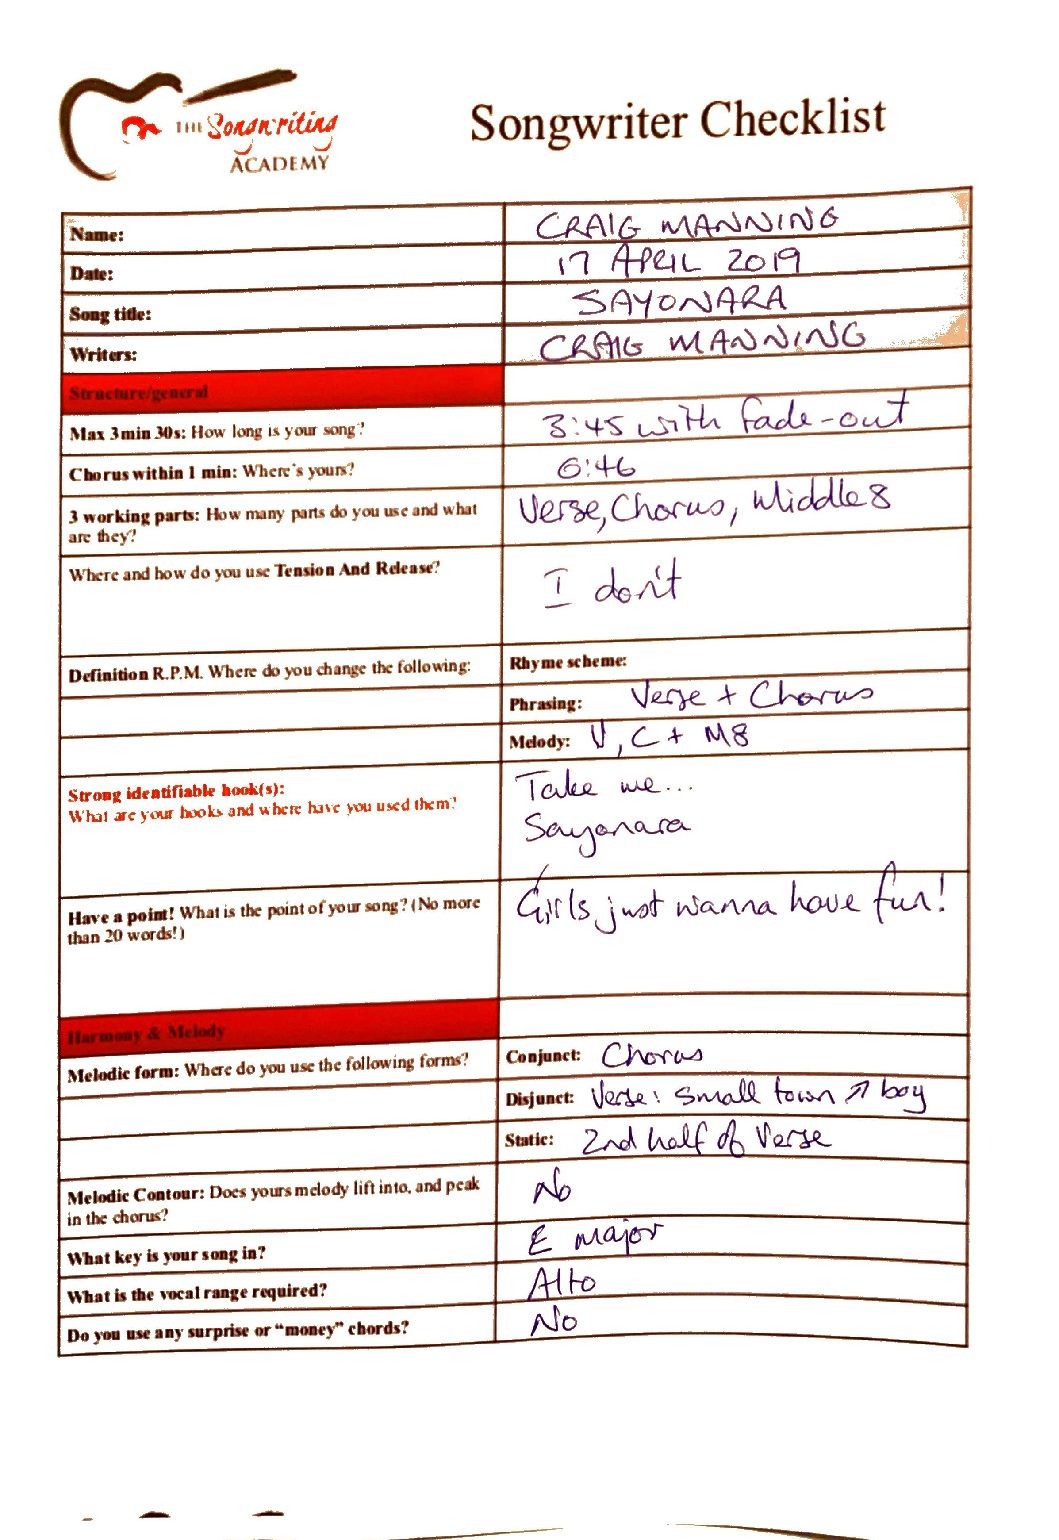 THE Songwriting
ACADEMY
Songwriter Checklist
Name: CRAIG MANNING
Date: 17 APRIL 2019
Song title: SAYONARA
Writers: CRAIG MANNING
Structure/general
Max 3min 30s: How long is your song? 3:45 with fade-out
Chorus within 1 min: Where's yours? 0:46
3 working parts: How many parts do you use and what
are they?
Verse, Chorus, Middle 8
Where and how do you use Tension And Release? I don't
Definition R.P.M. Where do you change the following: Rhyme scheme:
Phrasing: Verse + Chorus
Melody: V, C + M8
Strong identifiable hook(s):
What are your hooks and where have you used them?
Take me...
Sayonara
Have a point! What is the point of your song? (No more
than 20 words!)
Girls just wanna have fun!
Harmony & Melody
Melodic form: Where do you use the following forms? Conjunct: Chorus
Disjunct: Verse: small town ↗ boy
Static: 2nd half of Verse
Melodic Contour: Does yours melody lift into, and peak
in the chorus?
No
What key is your song in? E major
What is the vocal range required? Alto
Do you use any surprise or "money" chords? No